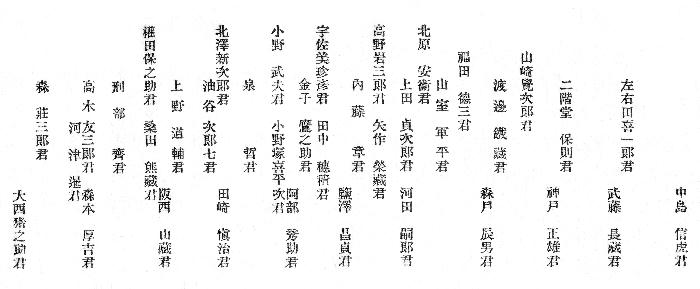 中島 信虎君
武藤 長藏君
左右田喜一郎君
神戸 正雄君
二階堂 保則君
山崎覺次郎君
森戸 辰男君
渡邊 鐵藏君
福田 德三君
山室 軍平君
北原 安衞君
上田 貞次郎君 河田 嗣郎君
高野岩三郎君 矢作 榮藏君
內藤 章君 鹽澤 昌貞君
宇佐美珍彥君 田中 穗積君
金子 鷹之助君 阿部 秀助君
小野 武夫君 小野塚喜平次君
泉 哲君
田崎 愼治君
北澤新次郎君
油谷 次郎七君
上野 道輔君
阪西 由藏君
權田保之助君 桑田 熊藏君
刑部 齊君
高木友三郎君 森本 厚吉君
河津 暹君
森 莊三郎君
大西猪之助君